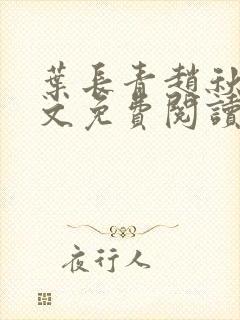 葉長青趙秋
文免費閱讀
夜行人